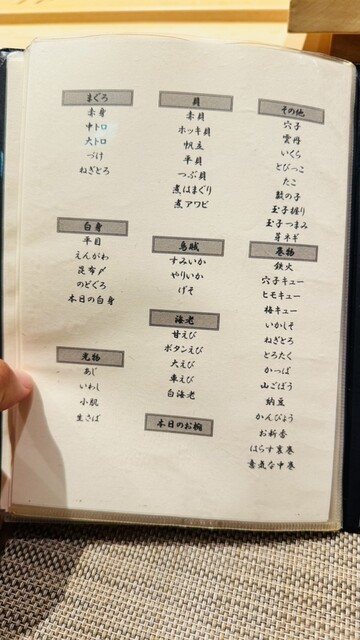 まぐろ
赤身
中トロ
大トロ
づけ
ねぎとろ
白身
平目
えんがわ
昆布〆
のどぐろ
本日の白身
光物
あじ
いわし
小肌
生さば
貝
赤貝
ホッキ貝
帆立
平貝
つぶ貝
煮はまぐり
煮アワビ
烏賊
すみいか
やりいか
げそ
海老
甘えび
ボタンえび
大えび
車えび
白海老
本日のお椀
その他
穴子
雲丹
いくら
とびっこ
たこ
数の子
玉子握り
玉子つまみ
芽ネギ
巻物
鉄火
穴子キュー
ヒモキュー
梅キュー
いかしそ
ねぎとろ
とろたく
かっぱ
山ごぼう
納豆
かんぴょう
お新香
はらす裏巻
意気な中巻